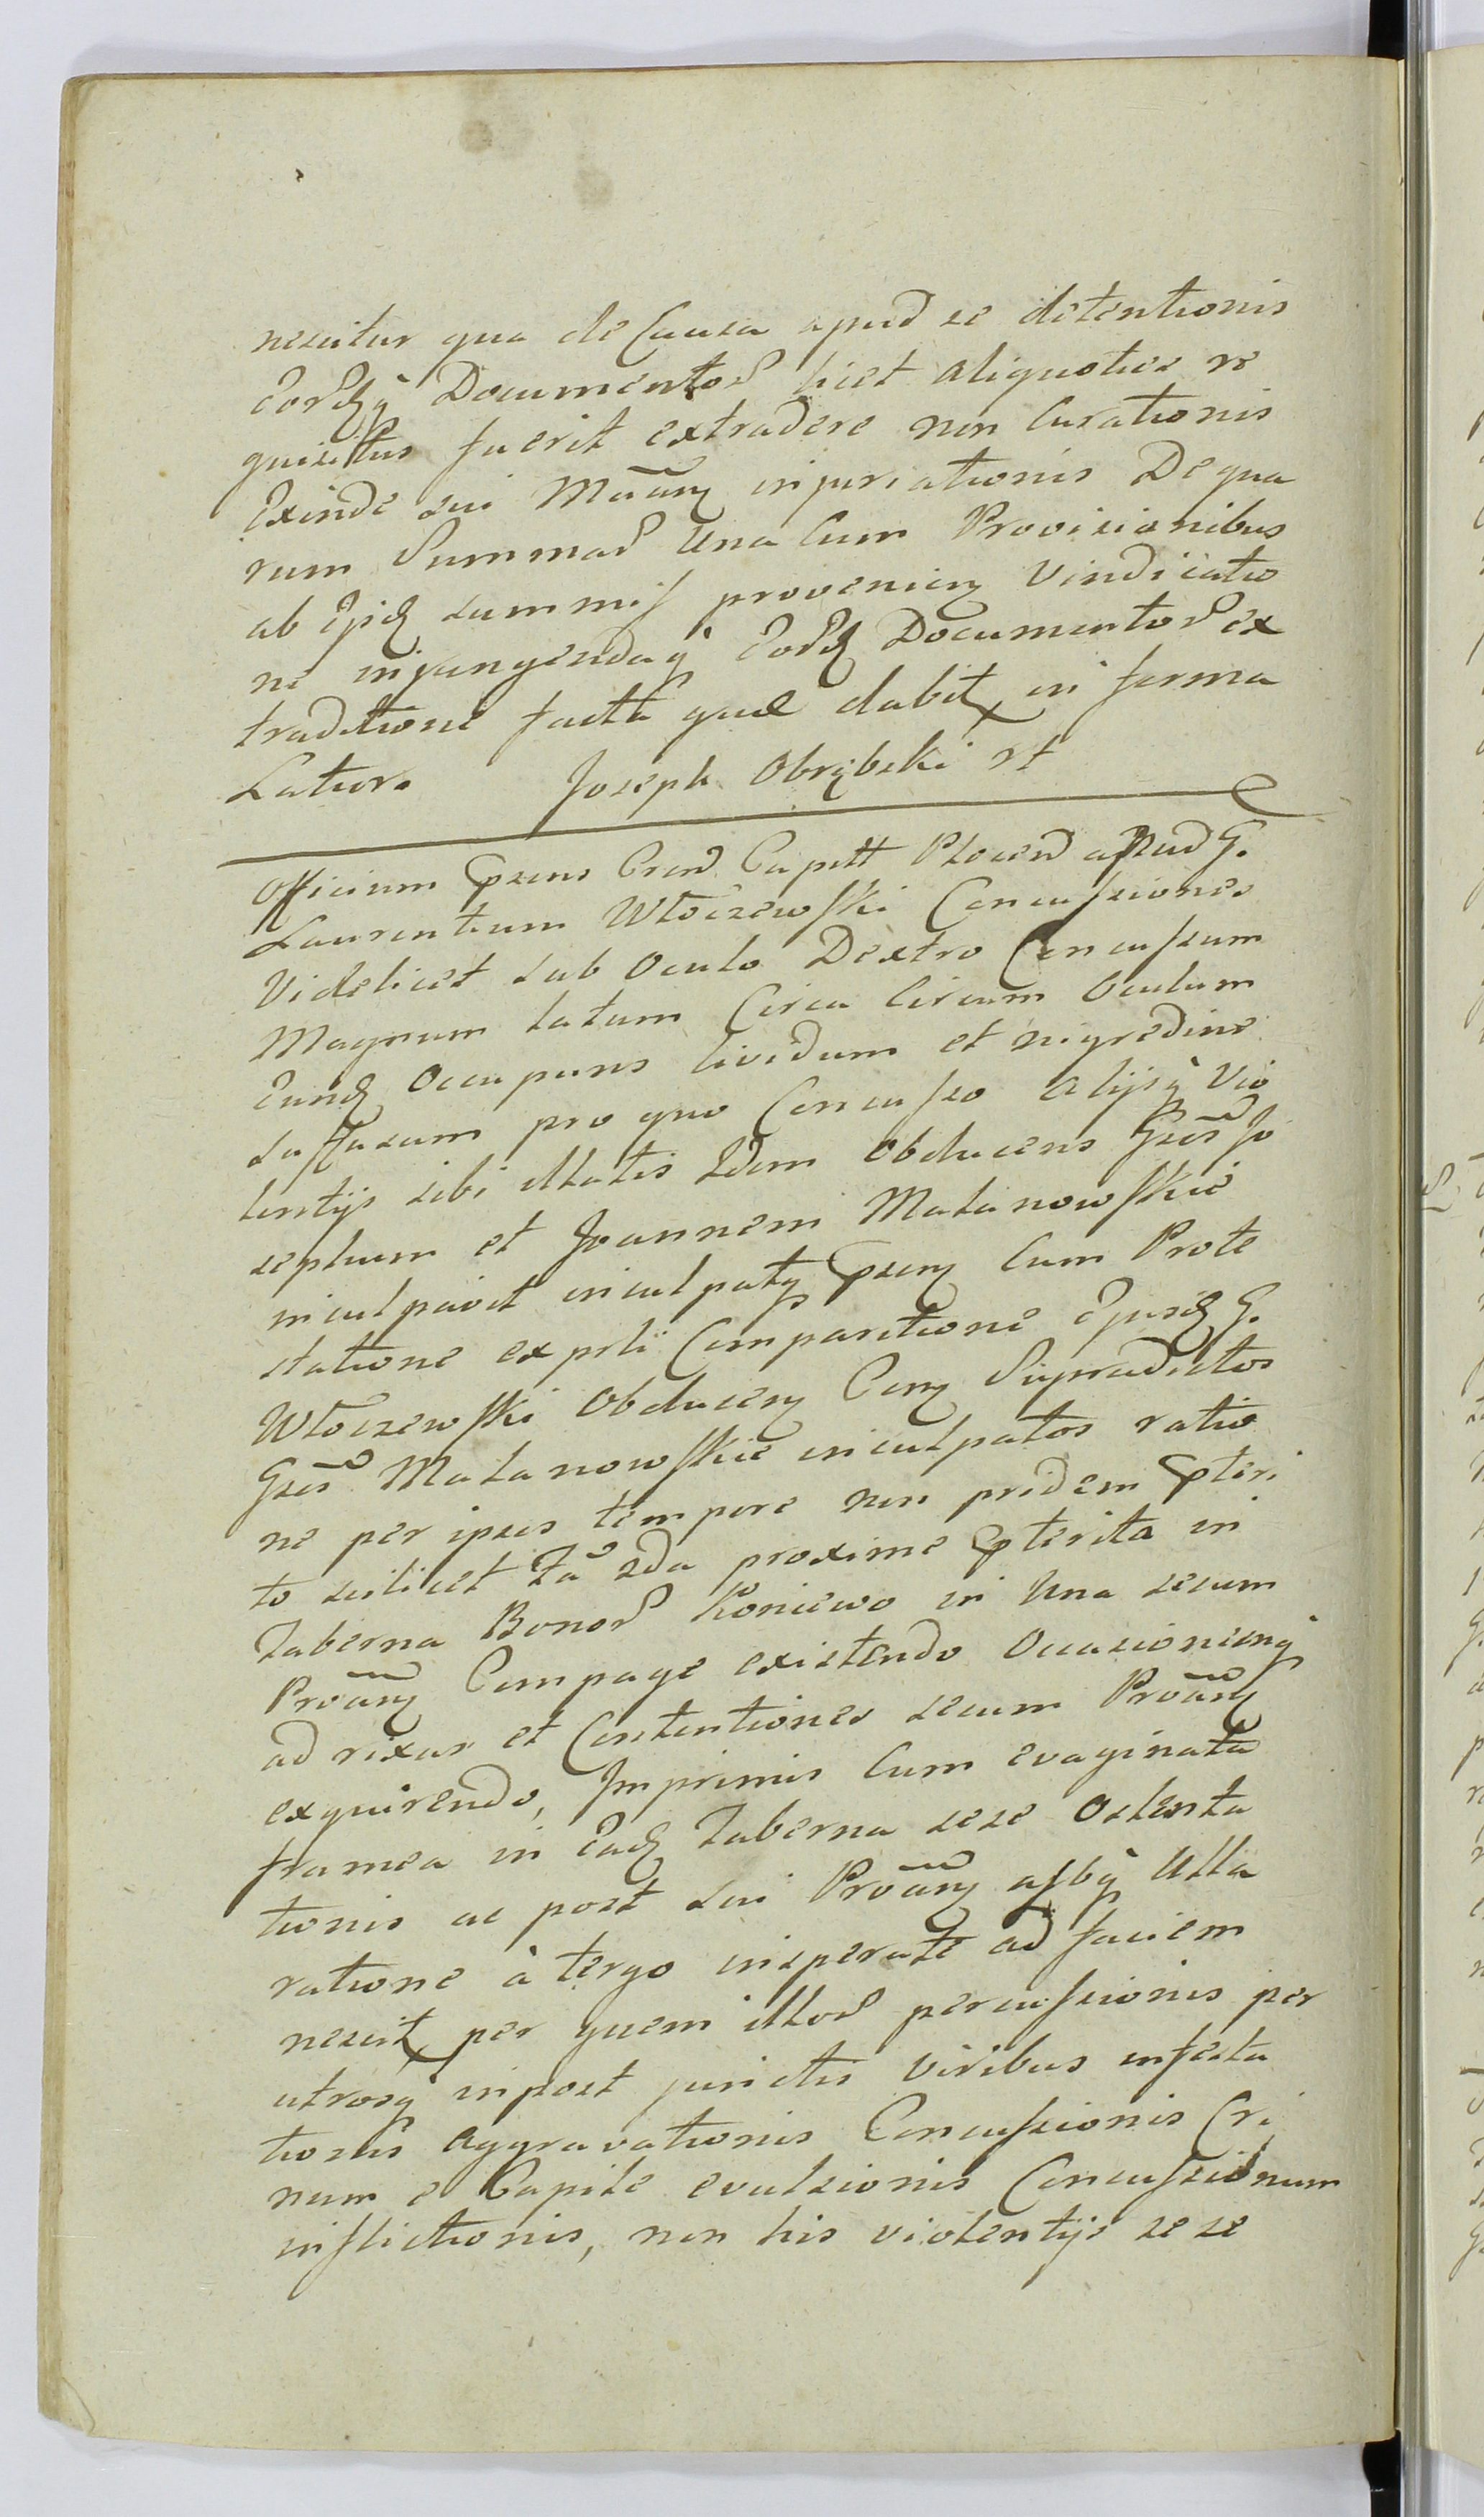 nescitur qua de Causa apud se detentionis
Eordq̀ Documentor licet aliquoties re
quisitus fuerit extradere non Curationis
Exinde sui Māan injuriationis De qua
rum Summar una Cum Provisionibus
ab ijsd summis provenien Vindicatio
ne injungendaq̀ Eord Documentor ex
traditione facta quae dabit in forma
Latior. Joseph Obrębski rt
Officium Prens Cren Capitt Plocen apud G.
Laurentium Włoczewski Concussiones
Videlicet sub Oculo Dextro Concussum
Magnum latum Circa Circum Oculum
Eund Occupans lividum et nigredine
suffusum pro quo Concusso alijsq̀ Vio
lentijs sibi illatis Idem Obducens Gsos Jo
sephum et Joannem Malanowskie
inculpavit inculpatq̀ Prens Cum Prote
statione ex prti Comparitione Ejusd G.
Włoczewski Obducen Con Supradictos
Gsos Malanowskie inculpatos ratio
ne per ipsos tempore non pridem Prteri
to scilicet Fā 2da proxime Prterita in
Taberna Bonor Koniewo in Una secum
Proāan Compage existendo Occasionemq̀
ad rixas et Contentiones secum Proāan
exquirendo, Imprimis Cum evaginata
framea in Ead Taberna sese Ostenta
tionis ac post sui Proāan asbq̀ Ulla
ratione à tergo insperate ad faciem
nescit per quem illor percussionis per
utrosq̀ inpost junctis Viribus infesta
tionis aggravationis Concussionis Cri
num e Capite evulsionis Concussionum
inflictionis, non his violentijs sese